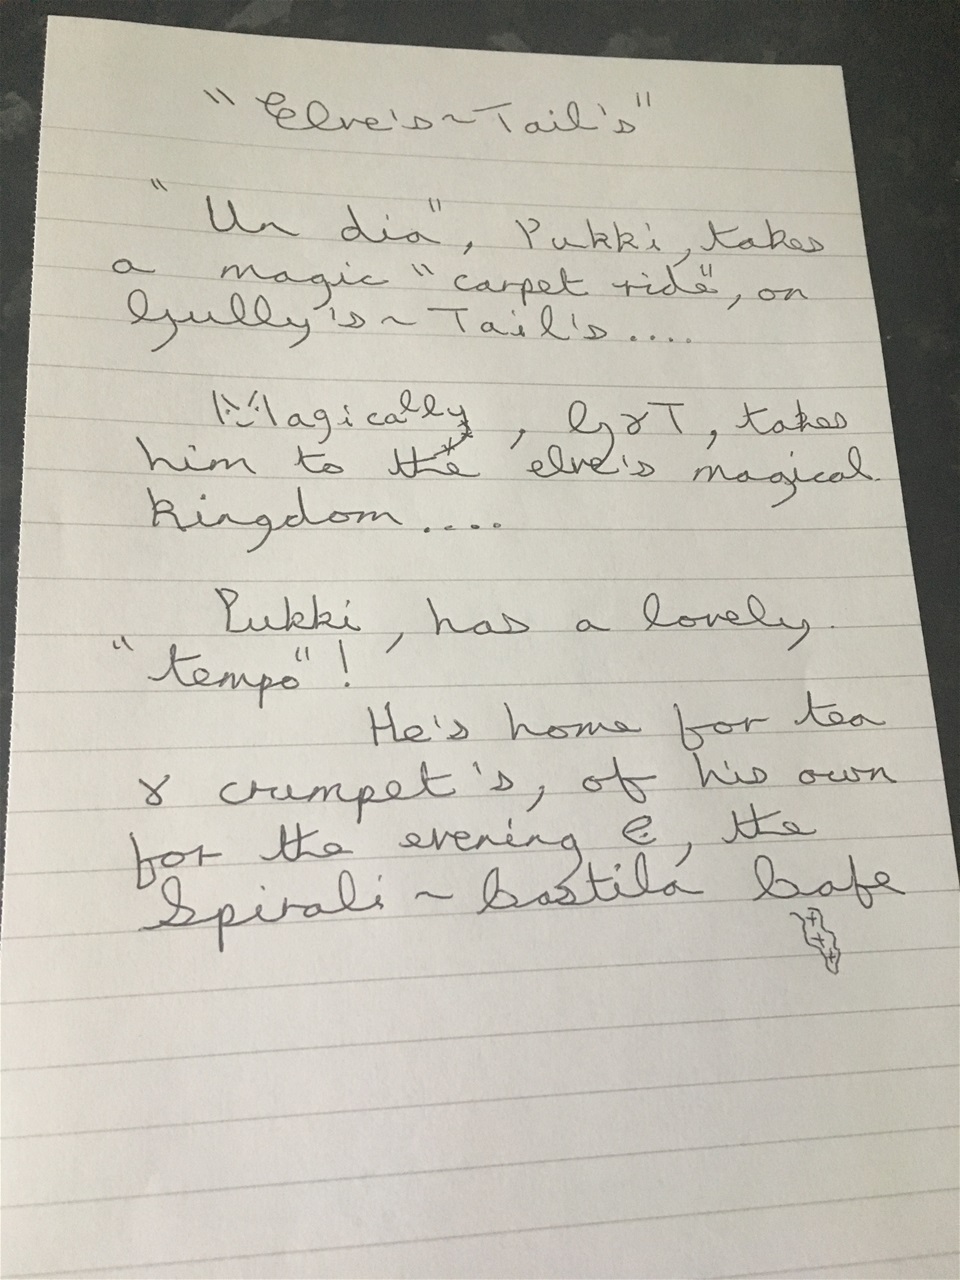 "Elve's ~ Tail's"
"Un dia", Pukki, takes
a magic "carpet ride", on
Gully's ~ Tail's....
Magically, G&T, takes
him to the elve's magical
kingdom....
Pukki, has a lovely
"tempo"!
He's home for tea
& crumpet's, of his own
for the evening @, the
Spirali ~ Castilá Cafe